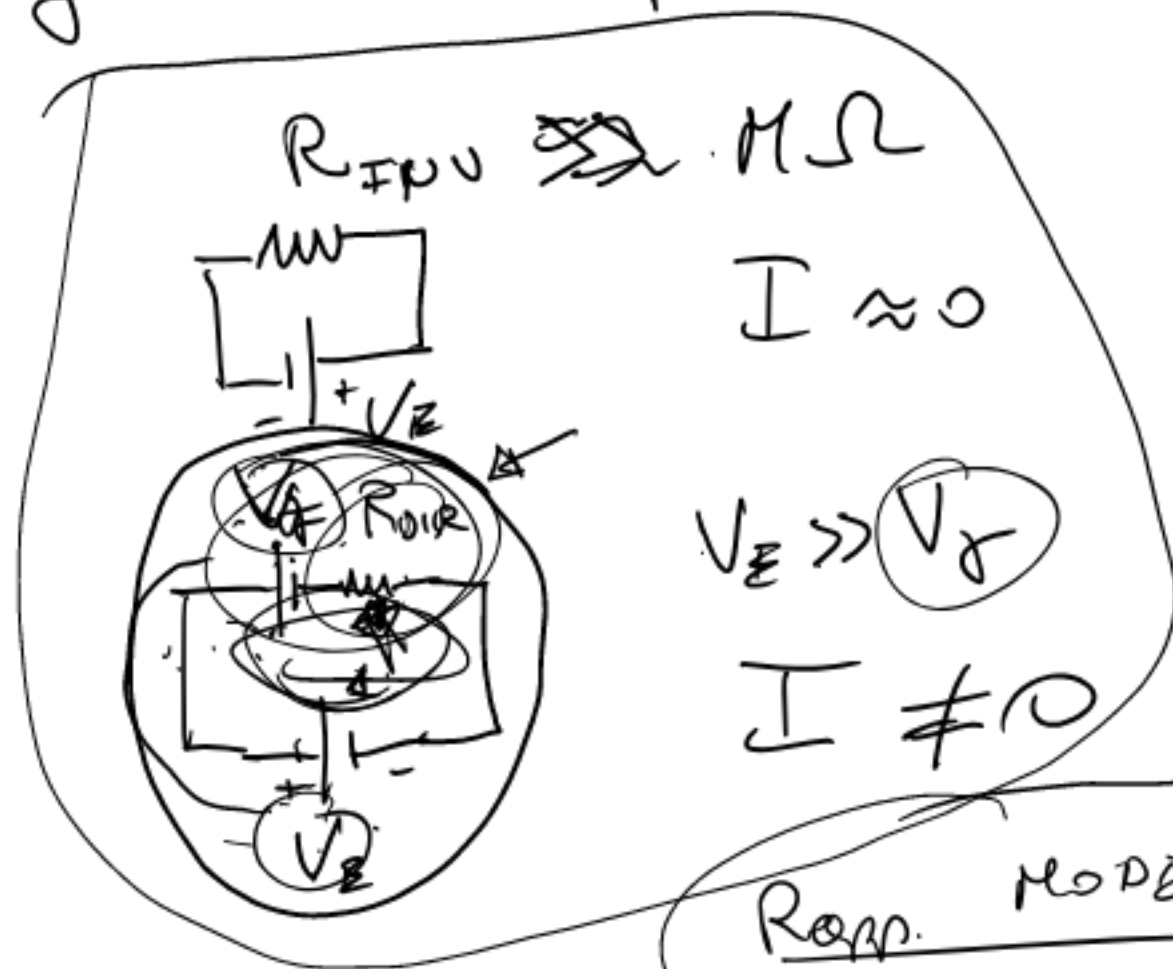 R_INV ⋙ MΩ
I ≈ 0
- + V_E
V_γ R_DIR
V_E ≫ V_γ
I ≠ 0
+ -
V_E
MODE